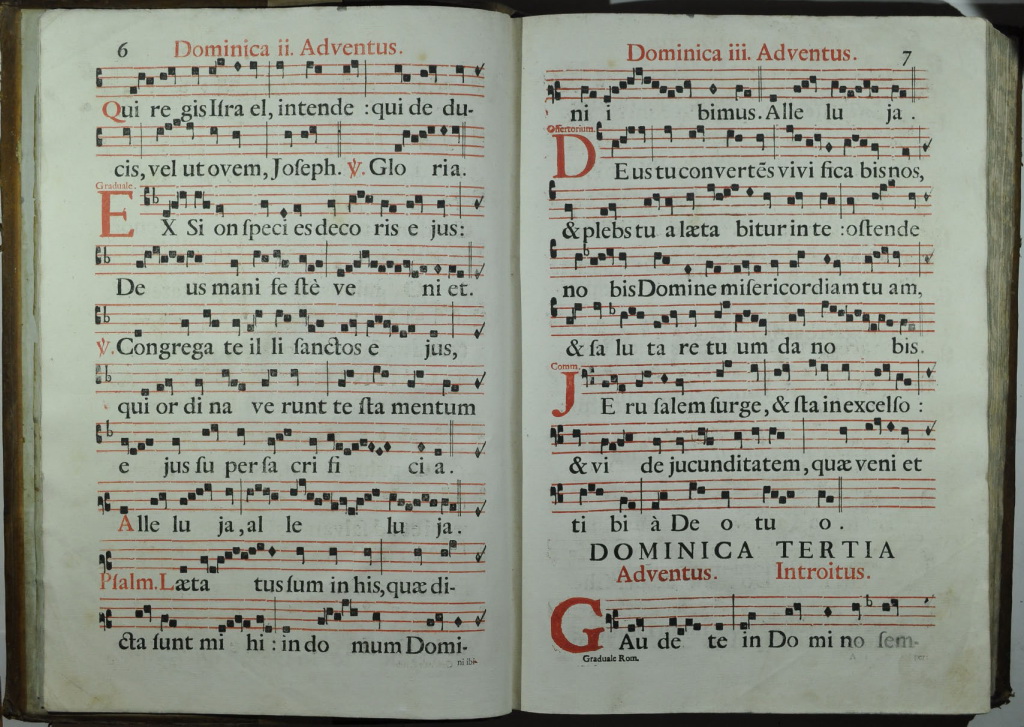 6 Dominica ii. Adventus.
Qui re gis Iſra el, intende : qui de du-
cis, vel ut ovem, Joſeph. ℣. Glo ria.
Graduale.
EX Si on ſpeci es deco ris e jus:
De us mani fe ſtè ve ni et.
℣. Congrega te il li ſanctos e jus,
qui or di na ve runt te ſta mentum
e jus ſu per ſa cri fi ci a.
Alle lu ja, al le lu ja.
Pſalm. Læta tus ſum in his, quæ di-
cta ſunt mi hi : in do mum Domi-
ni ibi-
Dominica iii. Adventus. 7
ni i bimus. Alle lu ja.
Offertorium.
DEus tu convertēs vivi fica bis nos,
& plebs tu a læta bitur in te : oſtende
no bis Domine miſericordiam tu am,
& ſa lu ta re tu um da no bis.
Comm.
JE ru ſalem ſurge, & ſta in excelſo :
& vi de jucunditatem, quæ veni et
ti bi à De o tu o.
DOMINICA TERTIA
Adventus. Introitus.
GAu de te in Do mi no ſem-
Graduale Rom.